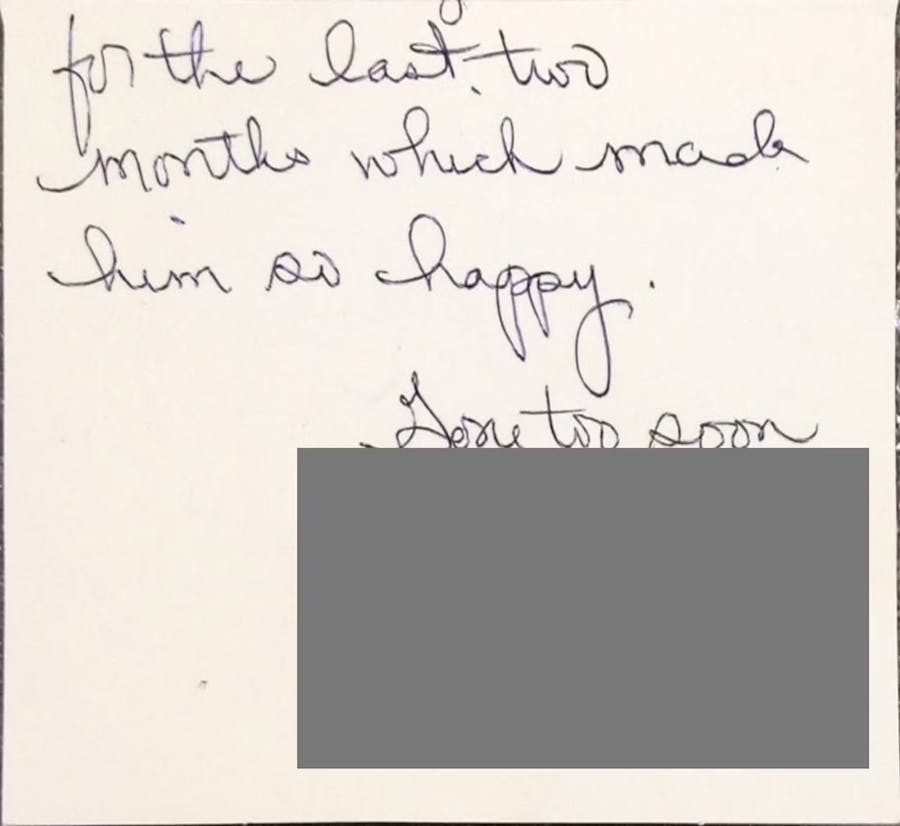 for the last two
months which made
him so happy.
Gone too soon